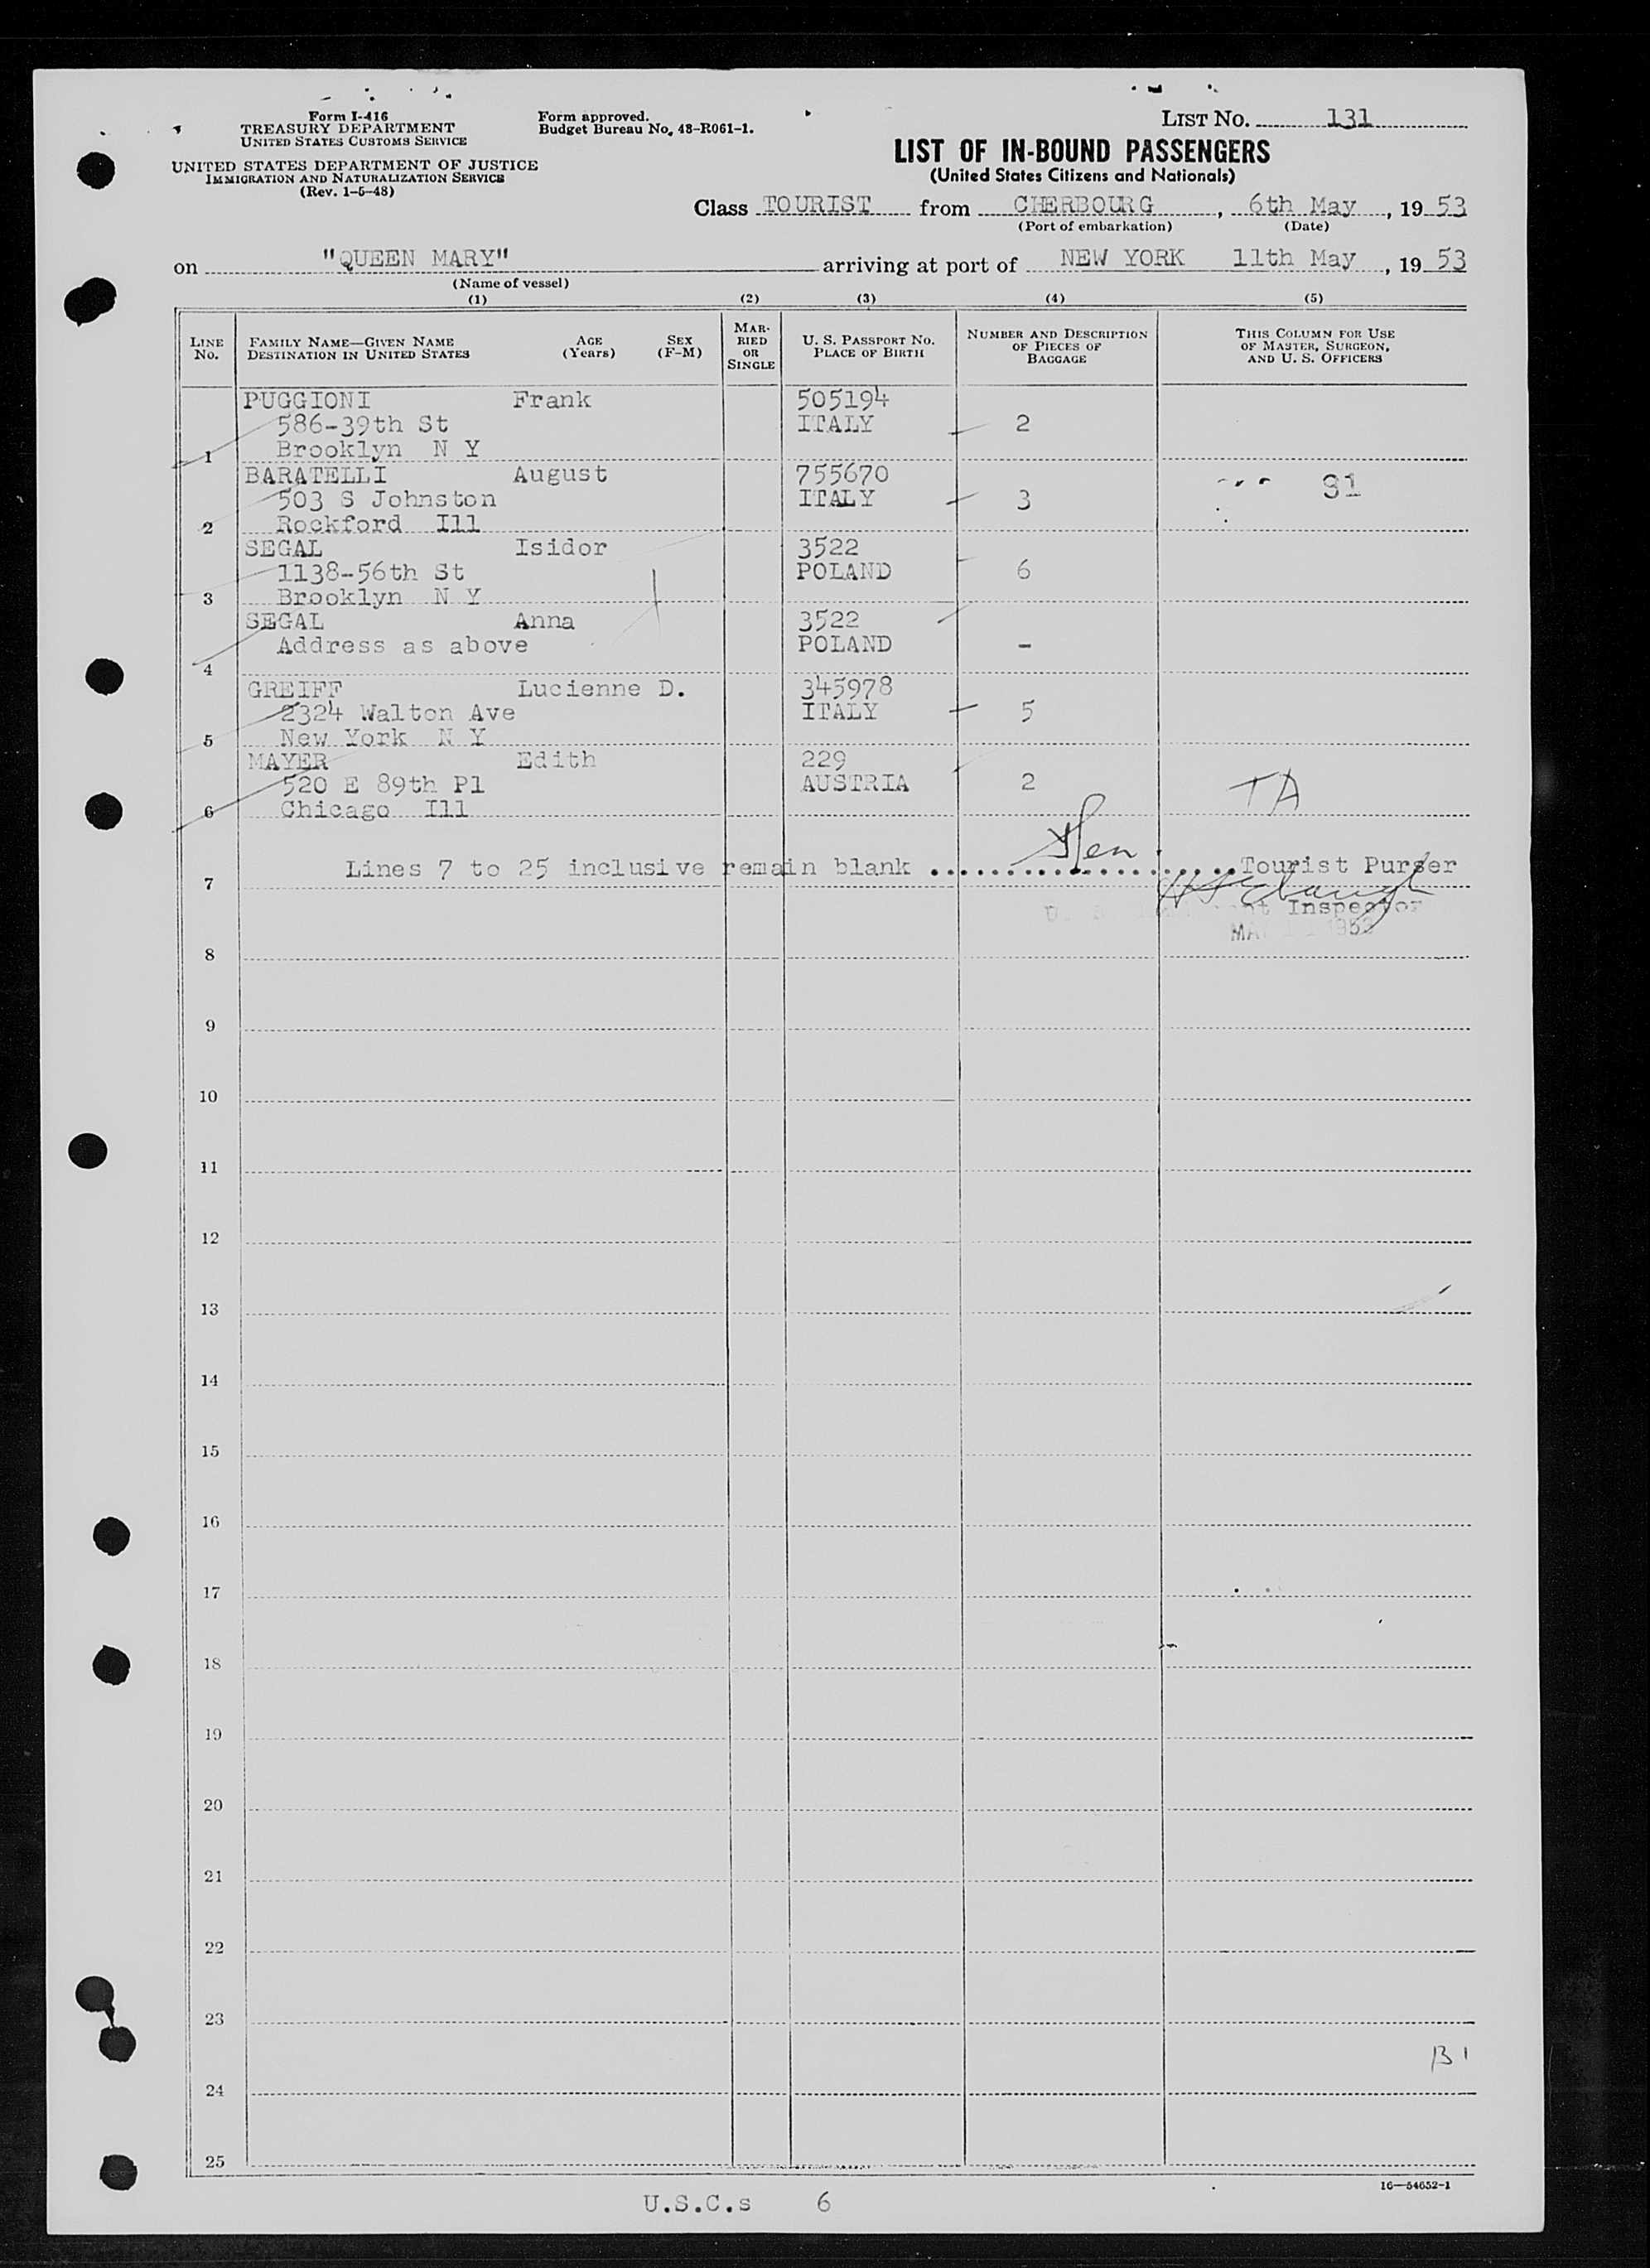 Form I-416
TREASURY DEPARTMENT
UNITED STATES CUSTOMS SERVICE
UNITED STATES DEPARTMENT OF JUSTICE
IMMIGRATION AND NATURALIZATION SERVICE
(Rev. 1-5-48)
Form approved.
Budget Bureau No. 48-R061-1.
LIST NO. 131
LIST OF IN-BOUND PASSENGERS
(United States Citizens and Nationals)
Class TOURIST from CHERBOURG, 6th May, 19 53
(Port of embarkation) (Date)
on "QUEEN MARY" arriving at port of NEW YORK 11th May, 19 53
(Name of vessel)
(1) (2) (3) (4) (5)
LINE NO.
FAMILY NAME—GIVEN NAME
DESTINATION IN UNITED STATES
AGE (Years)
SEX (F-M)
MARRIED OR SINGLE
U. S. PASSPORT NO.
PLACE OF BIRTH
NUMBER AND DESCRIPTION
OF PIECES OF
BAGGAGE
THIS COLUMN FOR USE
OF MASTER, SURGEON,
AND U. S. OFFICERS
PUGGIONI Frank 505194
586-39th St ITALY 2
1 Brooklyn N Y
BARATELLI August 755670
503 S Johnston ITALY 3 91
2 Rockford Ill
SEGAL Isidor 3522
1138-56th St POLAND 6
3 Brooklyn N Y
SEGAL Anna 3522
Address as above POLAND -
4
GREIFF Lucienne D. 345978
2324 Walton Ave ITALY 5
5 New York N Y
MAYER Edith 229
520 E 89th Pl AUSTRIA 2 TA
6 Chicago Ill
Lines 7 to 25 inclusive remain blank .................... Tourist Purser
7
Inspector
8
9
10
11
12
13
14
15
16
17
18
19
20
21
22
23
B1
24
25
16—54652-1
U.S.C.s 6